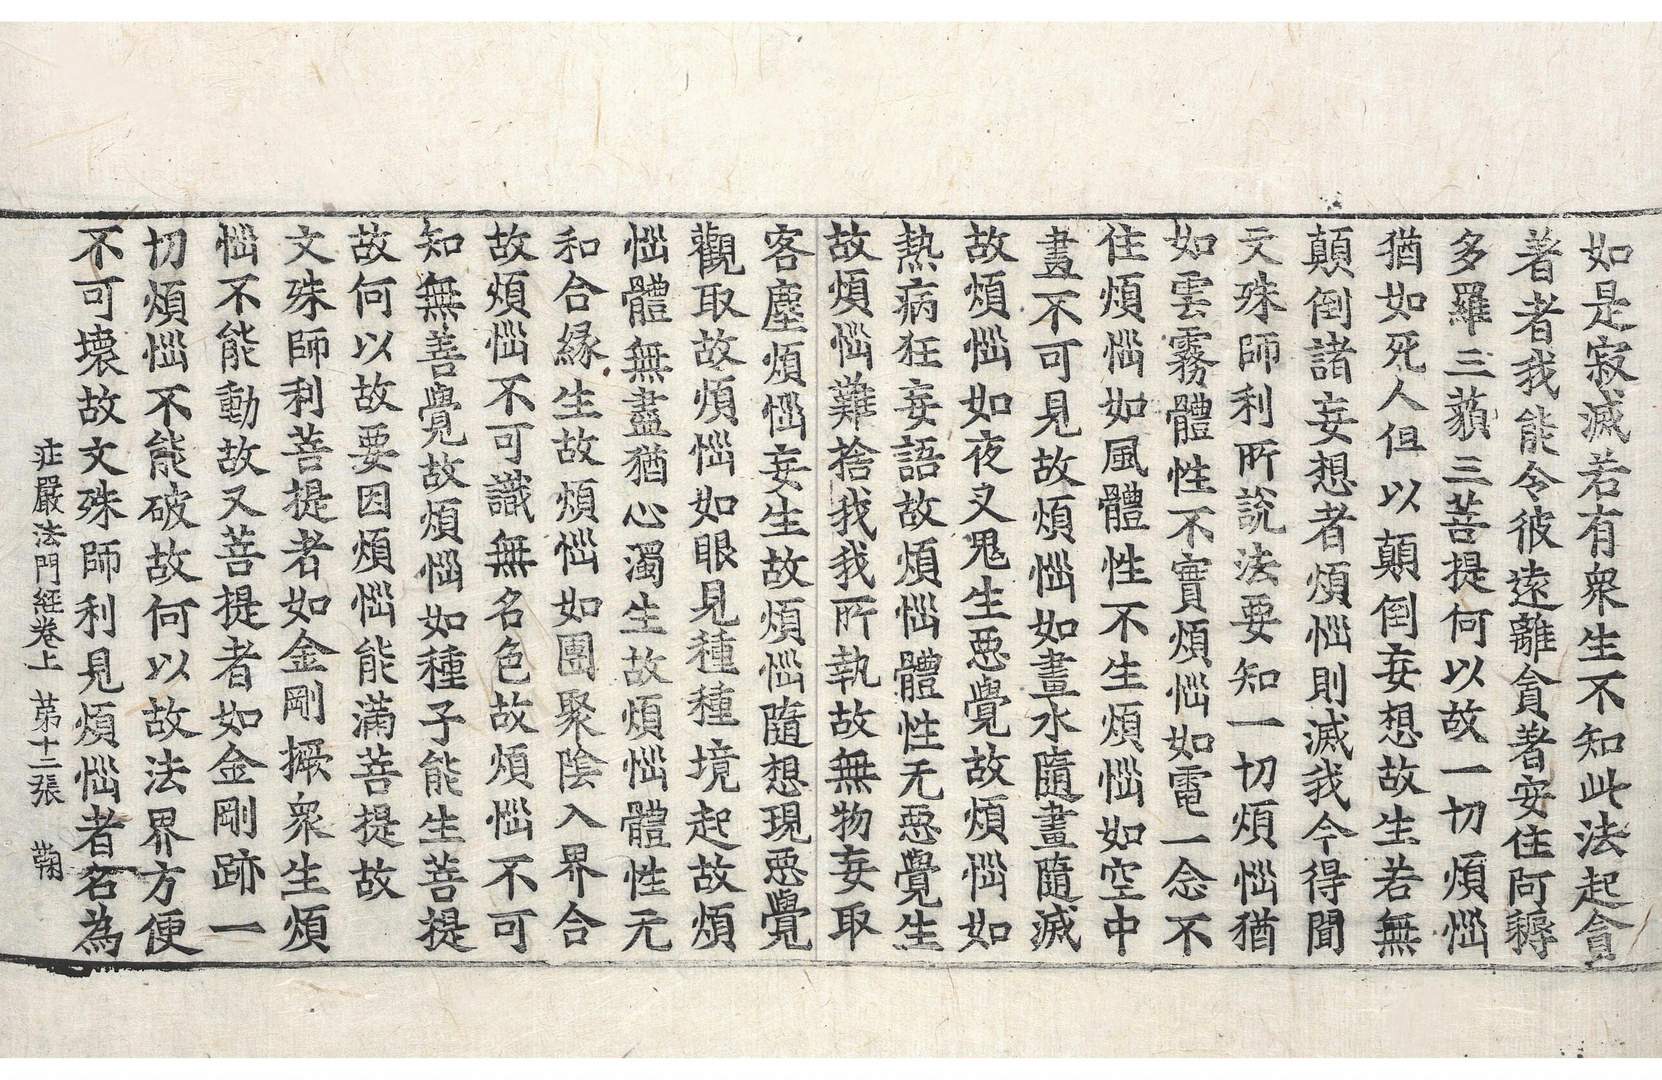 如是寂滅若有衆生不知此法起貪
著者我能令彼遠離貪著安住阿耨
多羅三藐三菩提何以故一切煩惱
猶如死人但以顛倒妄想故生若無
顛倒諸妄想者煩惱則滅我今得聞
文殊師利所說法要知一切煩惱猶
如雲霧體性不實煩惱如電一念不
住煩惱如風體性不生煩惱如空中
畫不可見故煩惱如畫水隨畫隨滅
故煩惱如夜叉鬼生惡覺故煩惱如
熱病狂妄語故煩惱體性无惡覺生
故煩惱難捨我我所執故無物妄取
客塵煩惱妄生故煩惱隨想現惡覺
觀取故煩惱如眼見種種境起故煩
惱體無盡猶心濁生故煩惱體性无
和合緣生故煩惱如團聚陰入界合
故煩惱不可識無名色故煩惱不可
知無善覺故煩惱如種子能生菩提
故何以故要因煩惱能滿菩提故
文殊師利菩提者如金剛橛衆生煩
惱不能動故又菩提者如金剛跡一
切煩惱不能破故何以故法界方便
不可壞故文殊師利見煩惱者名為
莊嚴法門經卷上 第十二張 鞠